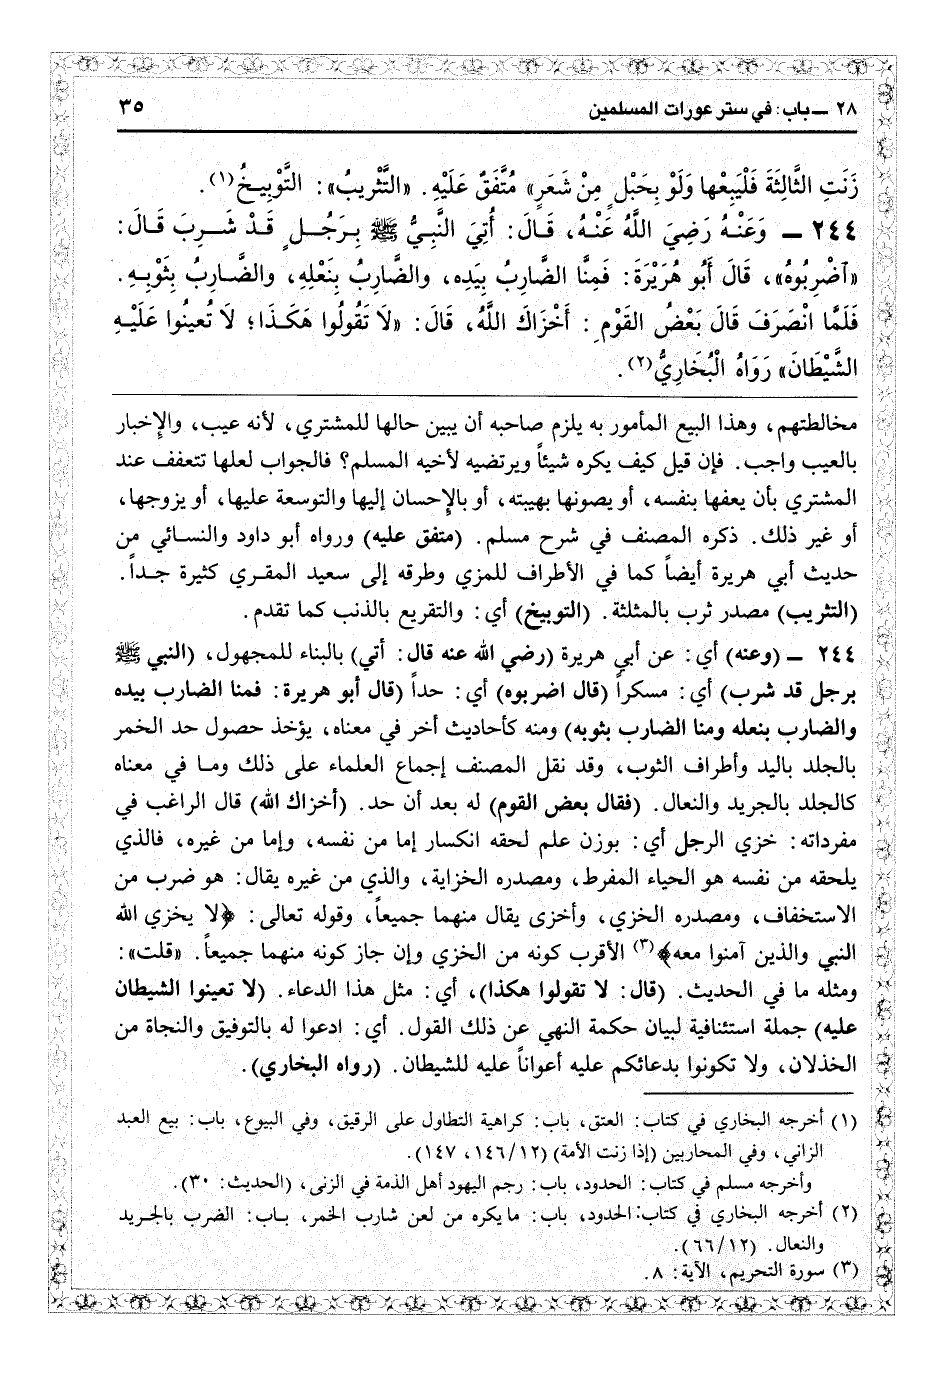 ٢٨ ــ باب: في ستر عورات المسلمين ٣٥
زَنَتِ الثَّالِثَةَ فَلْيَبِعْها وَلَوْ بِحَبْلٍ مِنْ شَعَرٍ» مُتَّفَقٌ عَلَيْهِ. «التَّثْرِيبُ»: التَّوْبِيخُ(١).
٢٤٤ ــ وَعَنْهُ رَضِيَ اللَّهُ عَنْهُ، قَالَ: أُتِيَ النَّبِيُّ ﷺ بِرَجُلٍ قَدْ شَرِبَ قَالَ:
«اَضْرِبُوهُ»، قَالَ أَبُو هُرَيْرَةَ: فَمِنَّا الضَّارِبُ بِيَدِهِ، والضَّارِبُ بِنَعْلِهِ، والضَّارِبُ بِثَوْبِهِ.
فَلَمَّا انْصَرَفَ قَالَ بَعْضُ القَوْمِ: أَخْزَاكَ اللَّهُ، قَالَ: «لَا تَقُولُوا هَكَذَا؛ لَا تُعينُوا عَلَيْهِ
الشَّيْطَانَ» رَوَاهُ الْبُخَارِيُّ(٢).
مخالطتهم، وهذا البيع المأمور به يلزم صاحبه أن يبين حالها للمشتري، لأنه عيب، والإخبار
بالعيب واجب. فإن قيل كيف يكره شيئاً ويرتضيه لأخيه المسلم؟ فالجواب لعلها تتعفف عند
المشتري بأن يعفها بنفسه، أو يصونها بهيبته، أو بالإحسان إليها والتوسعة عليها، أو يزوجها،
أو غير ذلك. ذكره المصنف في شرح مسلم. (متفق عليه) ورواه أبو داود والنسائي من
حديث أبي هريرة أيضاً كما في الأطراف للمزي وطرقه إلى سعيد المقري كثيرة جداً.
(التثريب) مصدر ثرب بالمثلثة. (التوبيخ) أي: والتقريع بالذنب كما تقدم.
٢٤٤ ــ (وعنه) أي: عن أبي هريرة (رضي الله عنه قال: أتي) بالبناء للمجهول، (النبي ﷺ
برجل قد شرب) أي: مسكراً (قال اضربوه) أي: حداً (قال أبو هريرة: فمنا الضارب بيده
والضارب بنعله ومنا الضارب بثوبه) ومنه كأحاديث أخر في معناه، يؤخذ حصول حد الخمر
بالجلد باليد وأطراف الثوب، وقد نقل المصنف إجماع العلماء على ذلك وما في معناه
كالجلد بالجريد والنعال. (فقال بعض القوم) له بعد أن حد. (أخزاك الله) قال الراغب في
مفرداته: خزي الرجل أي: بوزن علم لحقه انكسار إما من نفسه، وإما من غيره، فالذي
يلحقه من نفسه هو الحياء المفرط، ومصدره الخزاية، والذي من غيره يقال: هو ضرب من
الاستخفاف، ومصدره الخزي، وأخزى يقال منهما جميعاً، وقوله تعالى: ﴿لا يخزي الله
النبي والذين آمنوا معه﴾(٣) الأقرب كونه من الخزي وإن جاز كونه منهما جميعاً. «قلت»:
ومثله ما في الحديث. (قال: لا تقولوا هكذا)، أي: مثل هذا الدعاء. (لا تعينوا الشيطان
عليه) جملة استئنافية لبيان حكمة النهي عن ذلك القول. أي: ادعوا له بالتوفيق والنجاة من
الخذلان، ولا تكونوا بدعائكم عليه أعواناً عليه للشيطان. (رواه البخاري).
(١) أخرجه البخاري في كتاب: العتق، باب: كراهية التطاول على الرقيق، وفي البيوع، باب: بيع العبد
الزاني، وفي المحاربين (إذا زنت الأمة) (١٤٦/١٢، ١٤٧).
وأخرجه مسلم في كتاب: الحدود، باب: رجم اليهود أهل الذمة في الزنى، (الحديث: ٣٠).
(٢) أخرجه البخاري في كتاب: الحدود، باب: ما يكره من لعن شارب الخمر، باب: الضرب بالجريد
والنعال. (٦٦/١٢).
(٣) سورة التحريم، الآية: ٨.